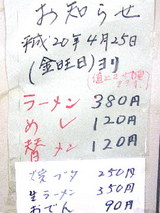 お知らせ
平成20年4月25日
(金旺日)ヨリ
ラーメン 380円
めし 120円
替メン 120円
250円
生ラーメン 350円
おでん 90円